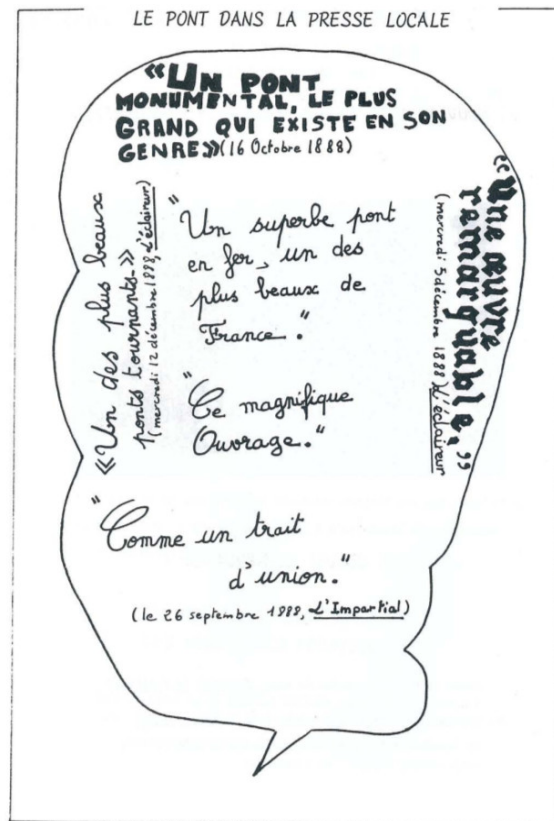 LE PONT DANS LA PRESSE LOCALE
«UN PONT
MONUMENTAL, LE PLUS
GRAND QUI EXISTE EN SON
GENRE» (16 Octobre 1888)
«Un des plus beaux
ponts tournants.»
(mercredi 12 décembre 1888, L'éclaireur)
"Un superbe pont
en fer, un des
plus beaux de
France."
"Ce magnifique
Ouvrage."
"Une œuvre
remarquable,"
(mercredi 5 décembre 1888) L'éclaireur
"Comme un trait
d'union."
(le 26 septembre 1888, L'Impartial)